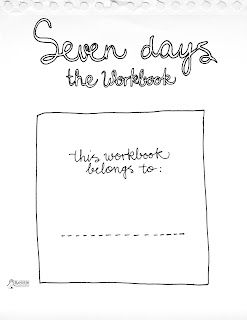 Seven days
the Workbook
this workbook
belongs to: